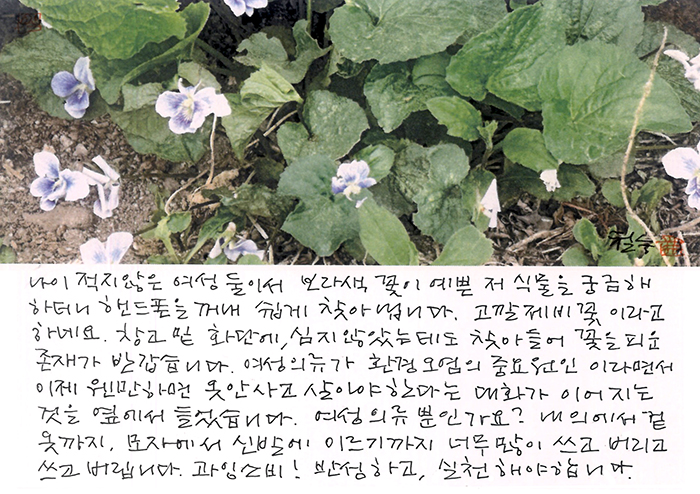 철수
나이 적지않은 여성 둘이서 보라색 꽃이 예쁜 저 식물을 궁금해
하더니 핸드폰을 꺼내 쉽게 찾아냅니다. 고깔제비꽃이라고
하네요. 창고 밑 화단에, 심지않았는데도 찾아들어 꽃을 피운
존재가 반갑습니다. 여성의류가 환경오염의 중요원인이라면서
이제 웬만하면 옷안사고 살아야한다는 대화가 이어지는
것을 옆에서 들었습니다. 여성의류뿐인가요? 내의에서 겉
옷까지, 모자에서 신발에 이르기까지 너무많이 쓰고 버리고
쓰고 버립니다. 과잉소비! 반성하고, 실천해야합니다.